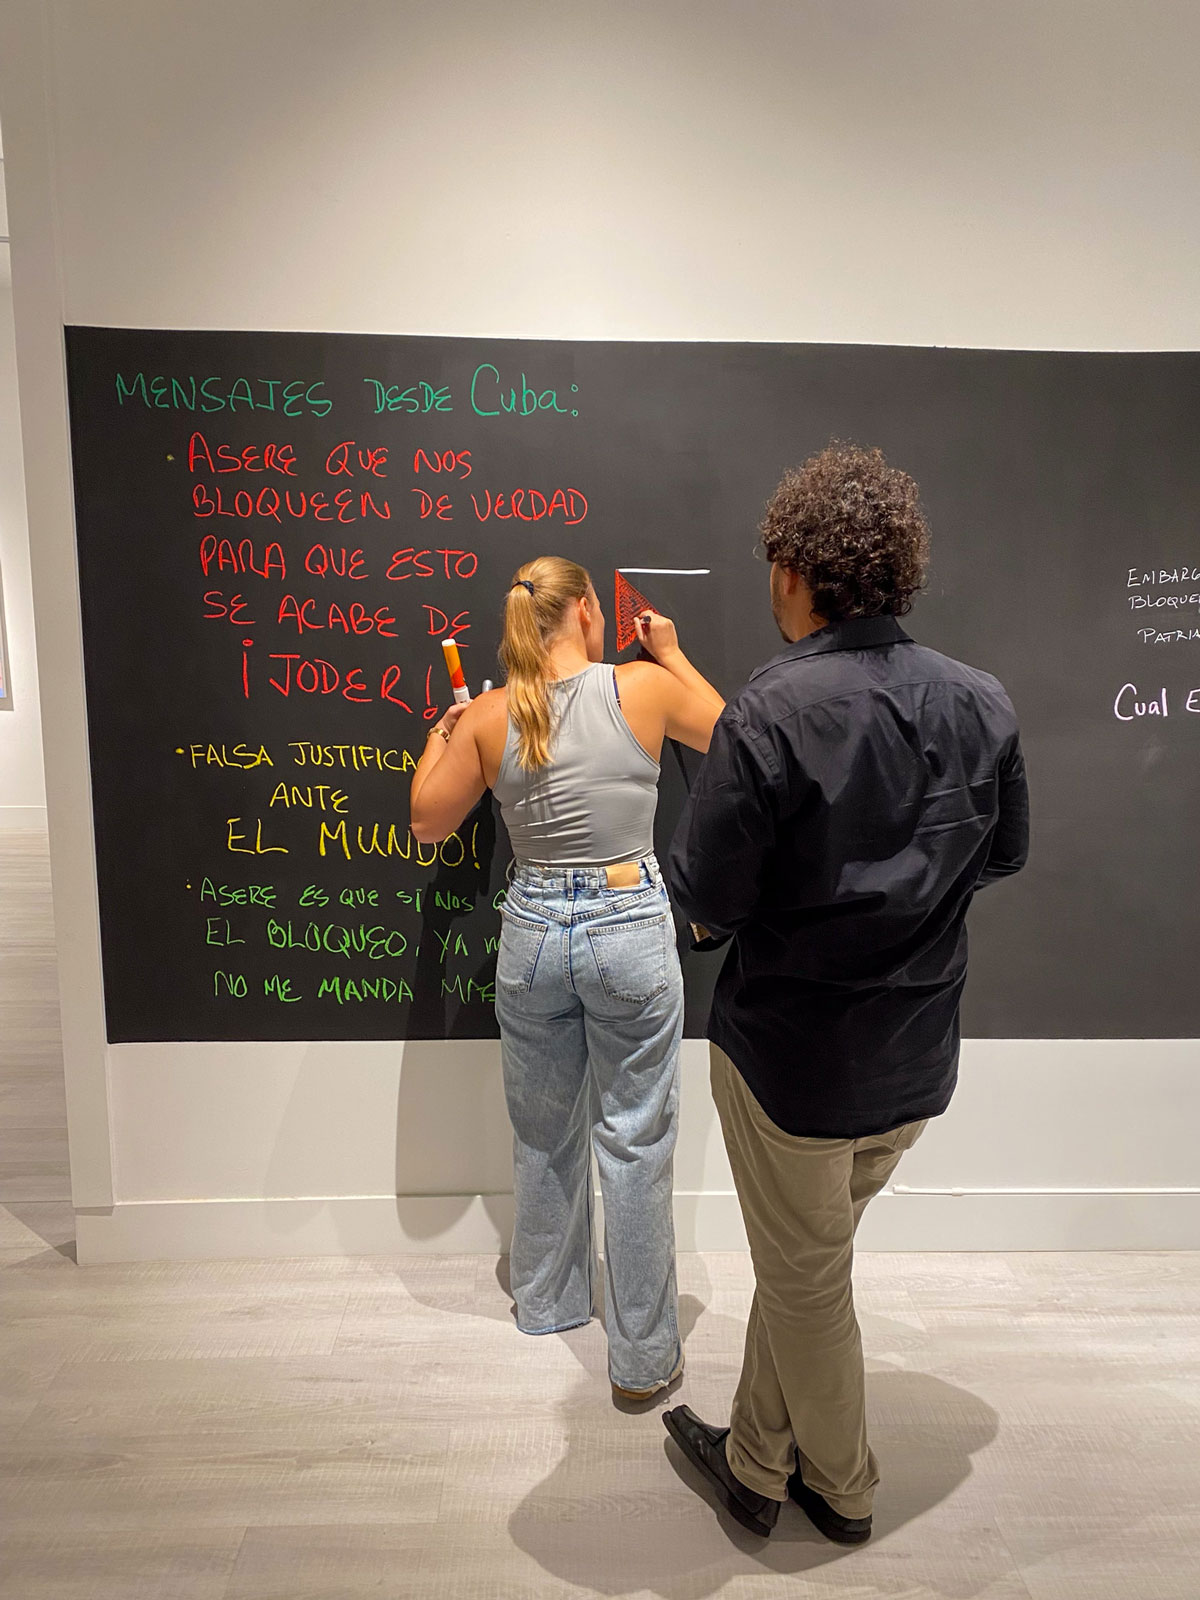 MENSAJES DESDE Cuba:
• ASERE QUE NOS
BLOQUEEN DE VERDAD
PARA QUE ESTO
SE ACABE DE
¡JODER!
• FALSA JUSTIFICA
ANTE
EL MUNDO!
• ASERE ES QUE SI NOS
EL BLOQUEO, YA
NO ME MANDA
EMBARG
BLOQUE
PATRIA
Cual E